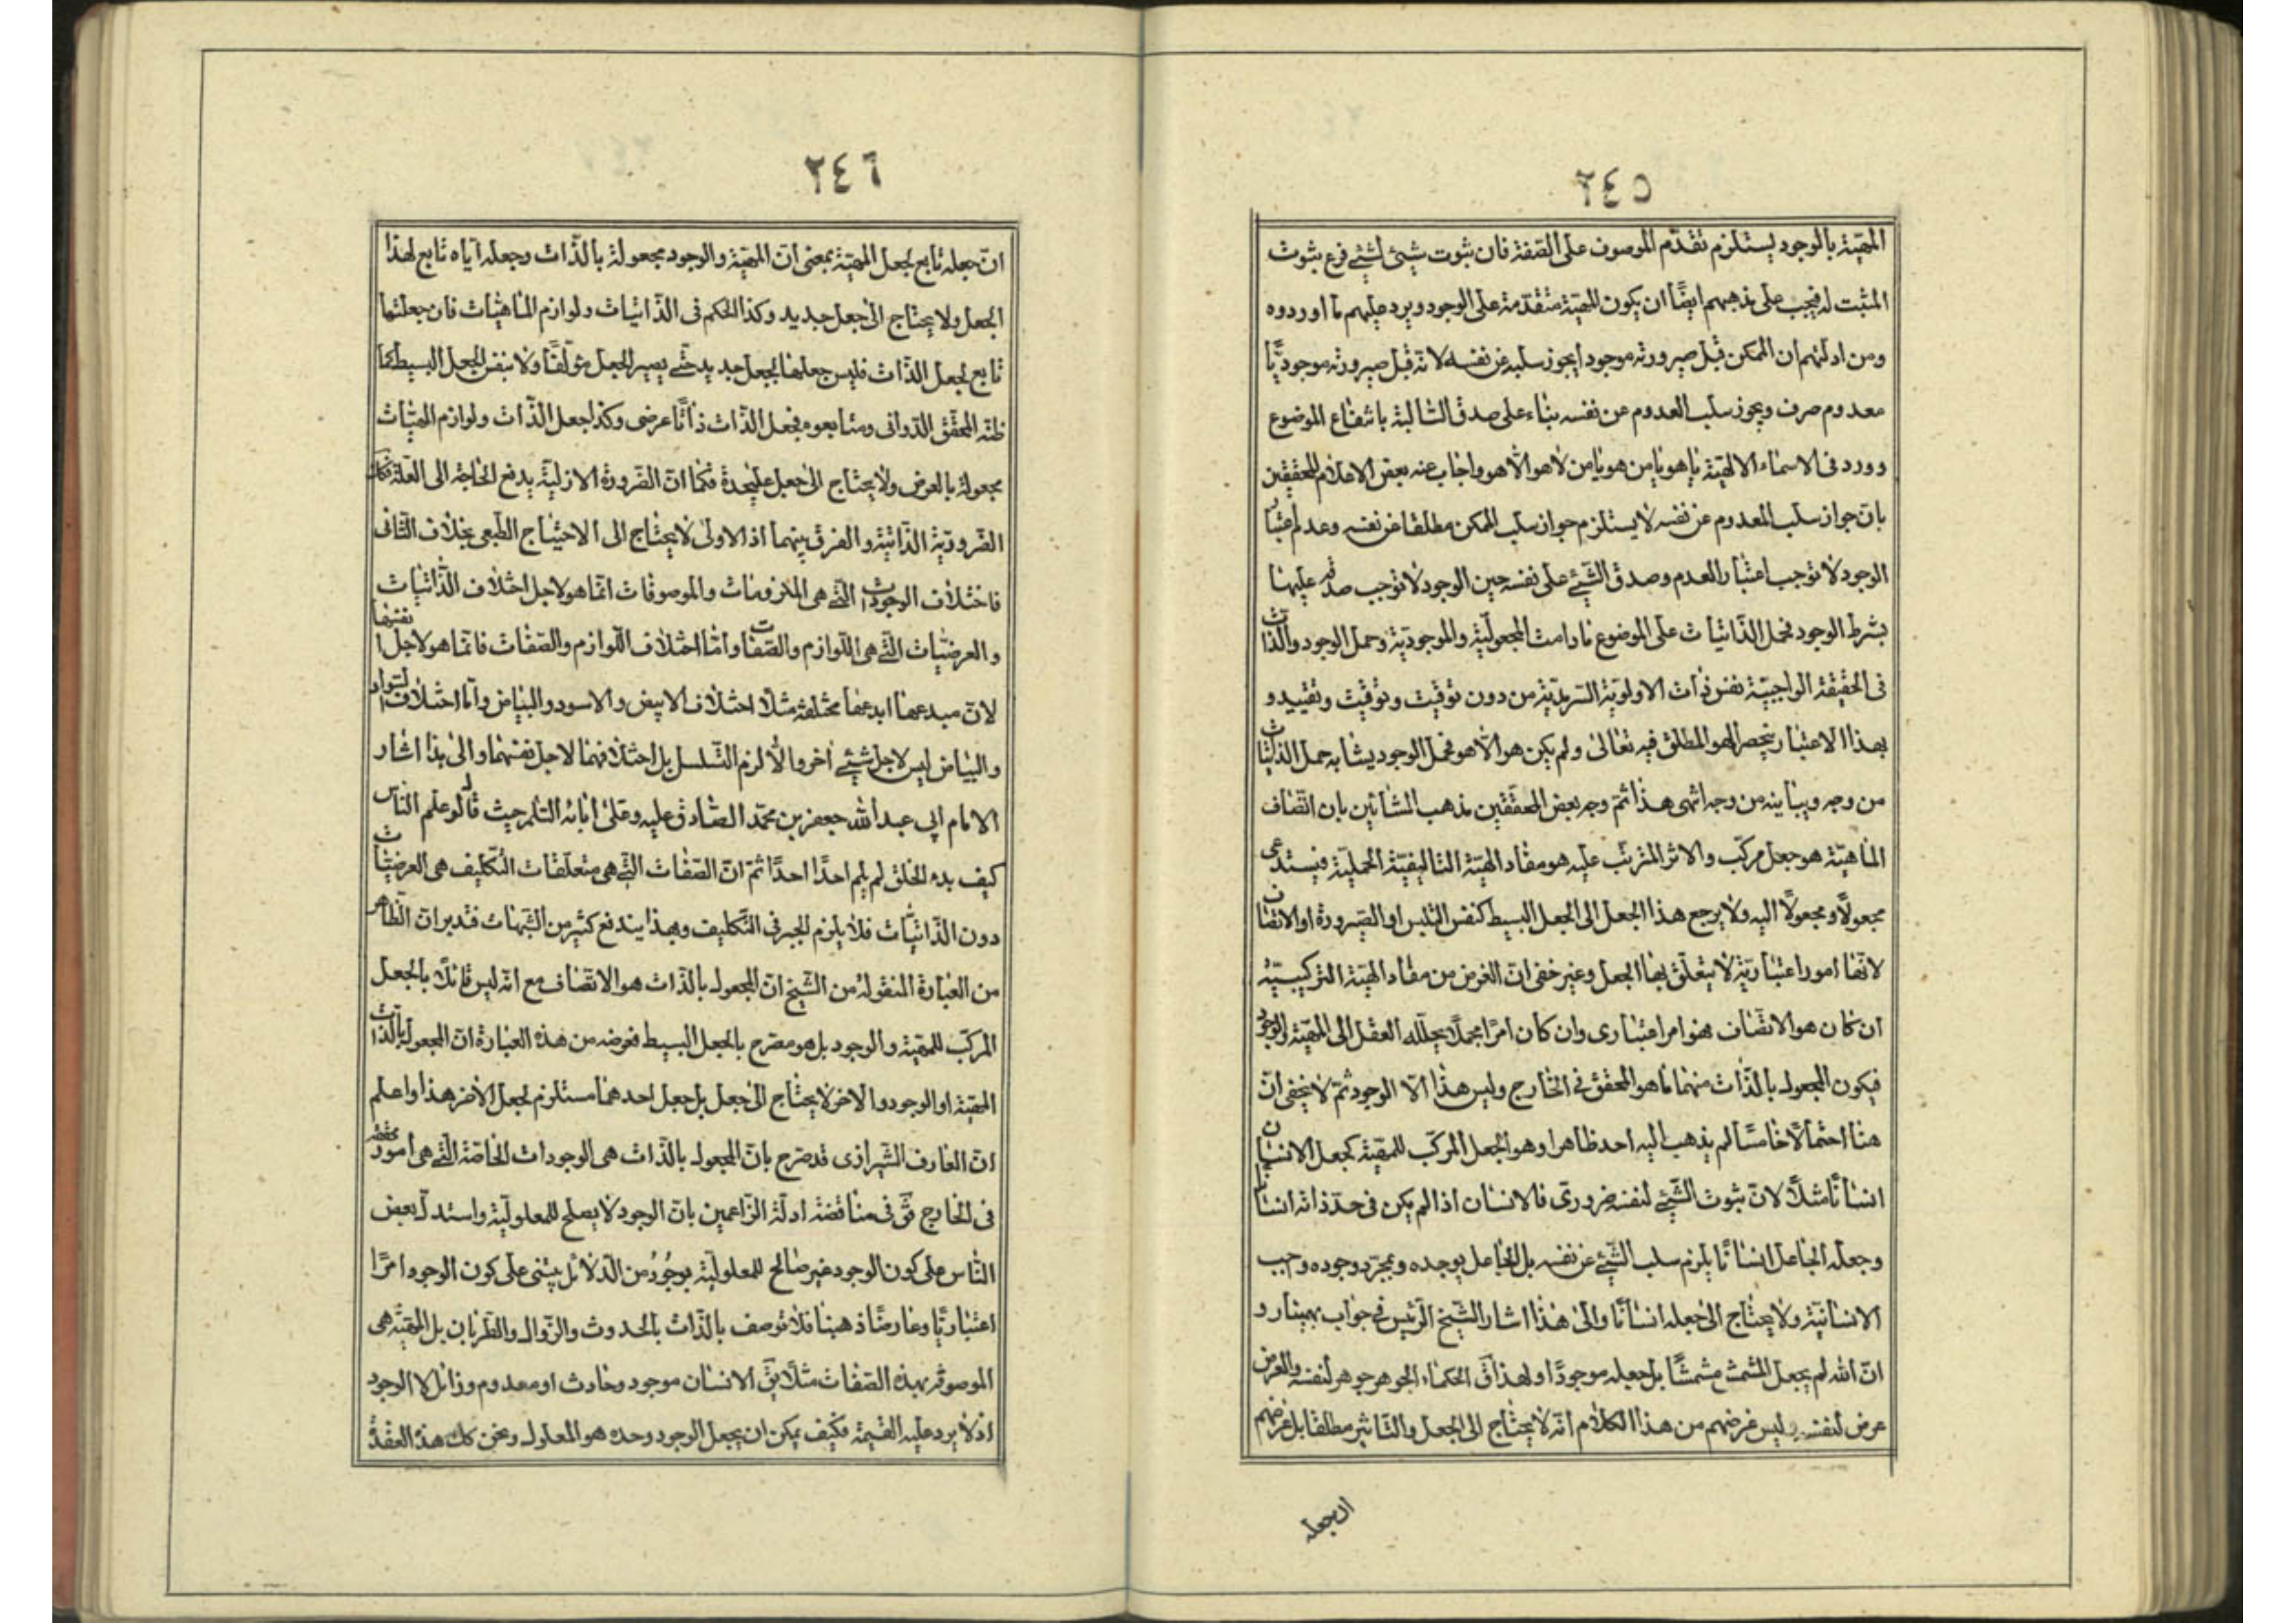 ٢٤٥
المهيّة بالوجود يستلزم تقدّم الموصوف على الصّفة فان ثبوت شيئ لشيئ فرع ثبوت
المثبت له فيجب على مذهبهم ايضًا ان يكون المهيّة متقدّمة على الوجود ويرد عليهم ما اوردوه
ومن ادلّتهم ان الممكن قبل صيرورته موجودا يجوز سلبه عن نفسه لانّه قبل صيرورته موجودًا
معدوم صرف ويجوز سلب المعدوم عن نفسه بناء على صدق السّالبة بانتفاع الموضوع
وورد فى الاسماء الالهيّة يا هو يا من هو يا من لا هو الّا هو واجاب عنه بعض الاعلام المحقّقين
بانّ جواز سلب المعدوم عن نفسه لا يستلزم جواز سلب الممكن مطلقا عن نفسه وعدم اعتبار
الوجود لا توجب اعتبار العدم وصدق الشّيئ على نفسه حين الوجود لا توجب صدقه عليها
بشرط الوجود فحمل الذّاتيات على الموضوع ما دامت المجعوليّة والموجوديّة وحمل الوجود والذّات
فى الحقيقة الواجبيّة نفس ذات الاولويّة السّرمديّة من دون توقيت وتوقيت وتقييد و
بهذا الاعتبار ينحصر الهو المطلق فيه تعالى ولم يكن هو الّا هو فحمل الوجود يشابه حمل الذّاتيات
من وجه ويباينه من وجه انتهى هذا ثمّ وجه بعض المحقّقين مذهب المشّائين بان اتّصاف
الماهيّة هو جعل مركّب والاثر المترتّب عليه هو مفاد الهيّة التاليفيّة الحمليّة فيستدعى
مجعولًا ومجعولًا اليه ولا يرجع هذا الجعل الى الجعل البسيط كنفس التلبس او الصّيرورة او الاتّصاف
لانّها امور اعتباريّة لا يتعلّق بها الجعل وغير خفى انّ الغرض من مفاد الهيّة التركيبيّة
ان كان هو الاتّصاف فهو امر اعتبارى وان كان امرًا مجملًا يحلّله العقل الى المهيّة والوجود
فيكون المجعول بالذّات منهما ما هو المحقّق فى الخارج وليس هذا الّا الوجود ثمّ لا يخفى انّ
هنا احتمالًا خامسًا لم يذهب اليه احد ظاهرا وهو الجعل المركّب للمهيّة كجعل الانسان
انسانًا مثلًا لانّ ثبوت الشّيئ لنفسه ضرورىّ فالانسان اذا لم يكن فى حدّ ذاته انسانا
وجعله الجاعل انسانًا يلزم سلب الشّيئ عن نفسه بل الجاعل يوجده وبمجرّد وجوده وجب
الانسانيّة ولا يحتاج الى جعله انسانًا والى هذا اشار الشّيخ الرّئيس فى جواب بهمنيار و
انّ الله لم يجعل المشمش مشمشًا بل جعله موجودًا ولهذا ق الحكماء الجوهر جوهر لنفسه والعرض
عرض لنفسه وليس غرضهم من هذا الكلام انّه لا يحتاج الى الجعل والتّاثير مطلقا بل غرضهم
ان جعله
٢٤٦
انّ جعله تابع لجعل المهيّة بمعنى انّ المهيّة والوجود مجعولة بالذّات وجعله ايّاه تابع لهذا
الجعل ولا يحتاج الى جعل جديد وكذا الحكم فى الذّاتيات ولوازم الماهيّات فان جعلتها
تابع لجعل الذّات فليس جعلها بجعل جديد حتّى يصير الجعل مؤلّفًا ولا بنفس الجعل البسيط كما
ظنّه المحقّق الدّوانى ومتابعوه فجعل الذّات ذاتًا عرضى وكذا جعل الذّات ولوازم المهيّات
مجعولة بالعرض ولا يحتاج الى جعل عليحدة فكما انّ الضّرورة الازليّة يدفع الحاجة الى العلّة فكك
الضّروريّة الذّاتيّة والفرق بينهما اذ الاولى لا يحتاج الى الاحتياج الطّبعى بخلاف الثّانى
فاختلاف الوجودات الّتى هى الملزومات والموصوفات انّما هو لاجل اختلاف الذّاتيات
والعرضيّات الّتى هى اللّوازم والصّفات وامّا اختلاف اللّوازم والصّفات فانّما هو لاجل انفسها
لانّ مبدعها ابدعها مختلفة مثلًا اختلاف الابيض والاسود والبياض وامّا اختلاف السّواد
والبياض ليس لاجل شيئ اخر والّا لزم التّسلسل بل اختلافهما لاجل نفسهما والى هذا اشار
الامام ابى عبد الله جعفر بن محمّد الصّادق عليه وعلى ابائه السّلم حيث قال لو علم النّاس
كيف بدء الخلق لم يلم احدًا احدًا ثمّ انّ الصّفات الّتى هى متعلّقات التّكليف هى العرضيّات
دون الذّاتيّات فلا يلزم الجبر فى التّكليف وبهذا يندفع كثير من الشّبهات فتدبر انّ الظّاهر
من العبارة المنقولة من الشّيخ انّ المجعول بالذّات هو الاتّصاف مع انّه ليس قائلًا بالجعل
المركّب للمهيّة والوجود بل هو مصرّح بالجعل البسيط فغرضه من هذه العبارة انّ المجعول بالذّات
المهيّة او الوجود والاخر لا يحتاج الى جعل بل جعل احدهما مستلزم لجعل الاخر هذا واعلم
انّ العارف الشّيرازى قد صرّح بانّ المجعول بالذّات هى الوجودات الخاصّة الّتى هى امور
فى الخارج فق فى مناقضة ادلّة الزّاعمين بانّ الوجود لا يصلح للمعلوليّة واستدلّ بعض
النّاس على كون الوجود غير صالح للمعلوليّة بوجوُه من الدّلائل يبتنى على كون الوجود امرًا
اعتباريًا وعارضًا ذهنيا فلا يوصف بالذّات بالحدوث والزّوال والطّريان بل المهيّة هى
الموصوفة بهذه الصّفات مثلًا يق الانسان موجود وحادث او معدوم وزائل لا الوجود
اذ لا يرد عليه القسمة فكيف يمكن ان يجعل الوجود وحده هو المعلول ونحن كك هذه العقدة